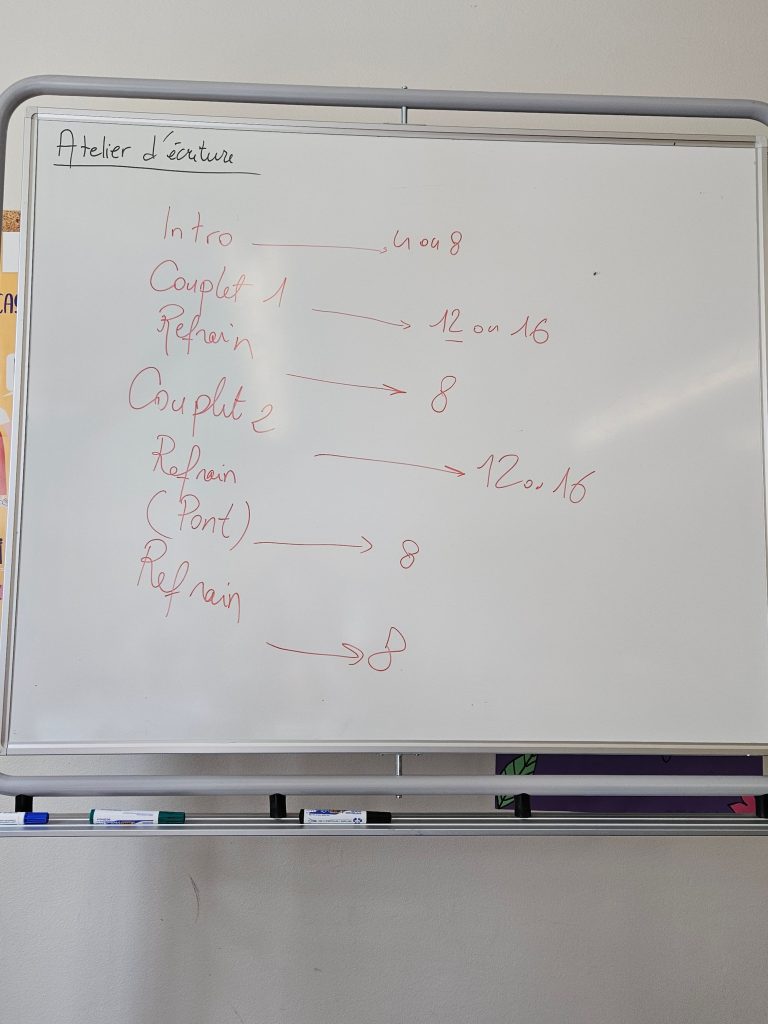 Atelier d'écriture
Intro → 4 ou 8
Couplet 1
→ 12 ou 16
Refrain
→ 8
Couplet 2
→ 12 ou 16
Refrain
(Pont) → 8
Refrain
→ 8